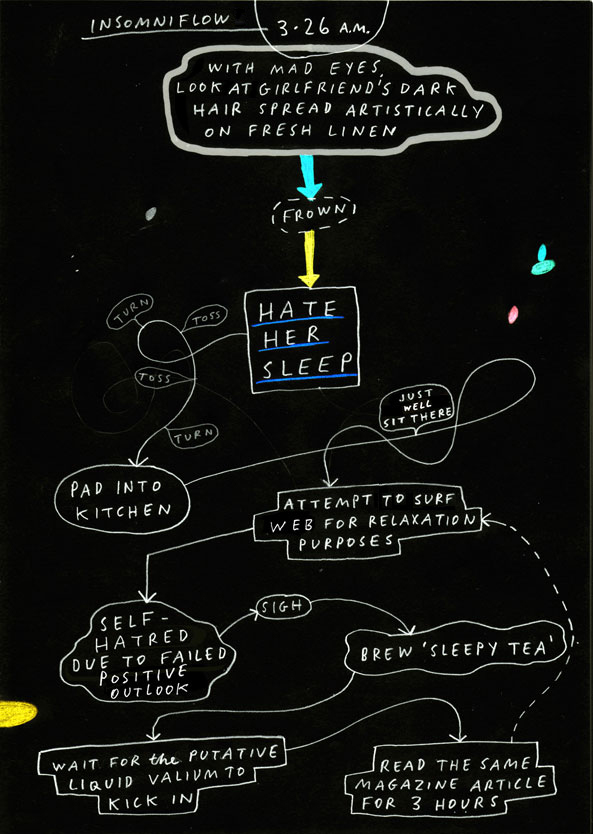 INSOMNIFLOW
3·26 A.M.
WITH MAD EYES,
LOOK AT GIRLFRIEND'S DARK
HAIR SPREAD ARTISTICALLY
ON FRESH LINEN
FROWN
HATE
HER
SLEEP
TOSS
TURN
TOSS
TURN
PAD INTO
KITCHEN
JUST
WELL
SIT THERE
ATTEMPT TO SURF
WEB FOR RELAXATION
PURPOSES
SELF-
HATRED
DUE TO FAILED
POSITIVE
OUTLOOK
SIGH
BREW 'SLEEPY TEA'
WAIT FOR the PUTATIVE
LIQUID VALIUM TO
KICK IN
READ THE SAME
MAGAZINE ARTICLE
FOR 3 HOURS